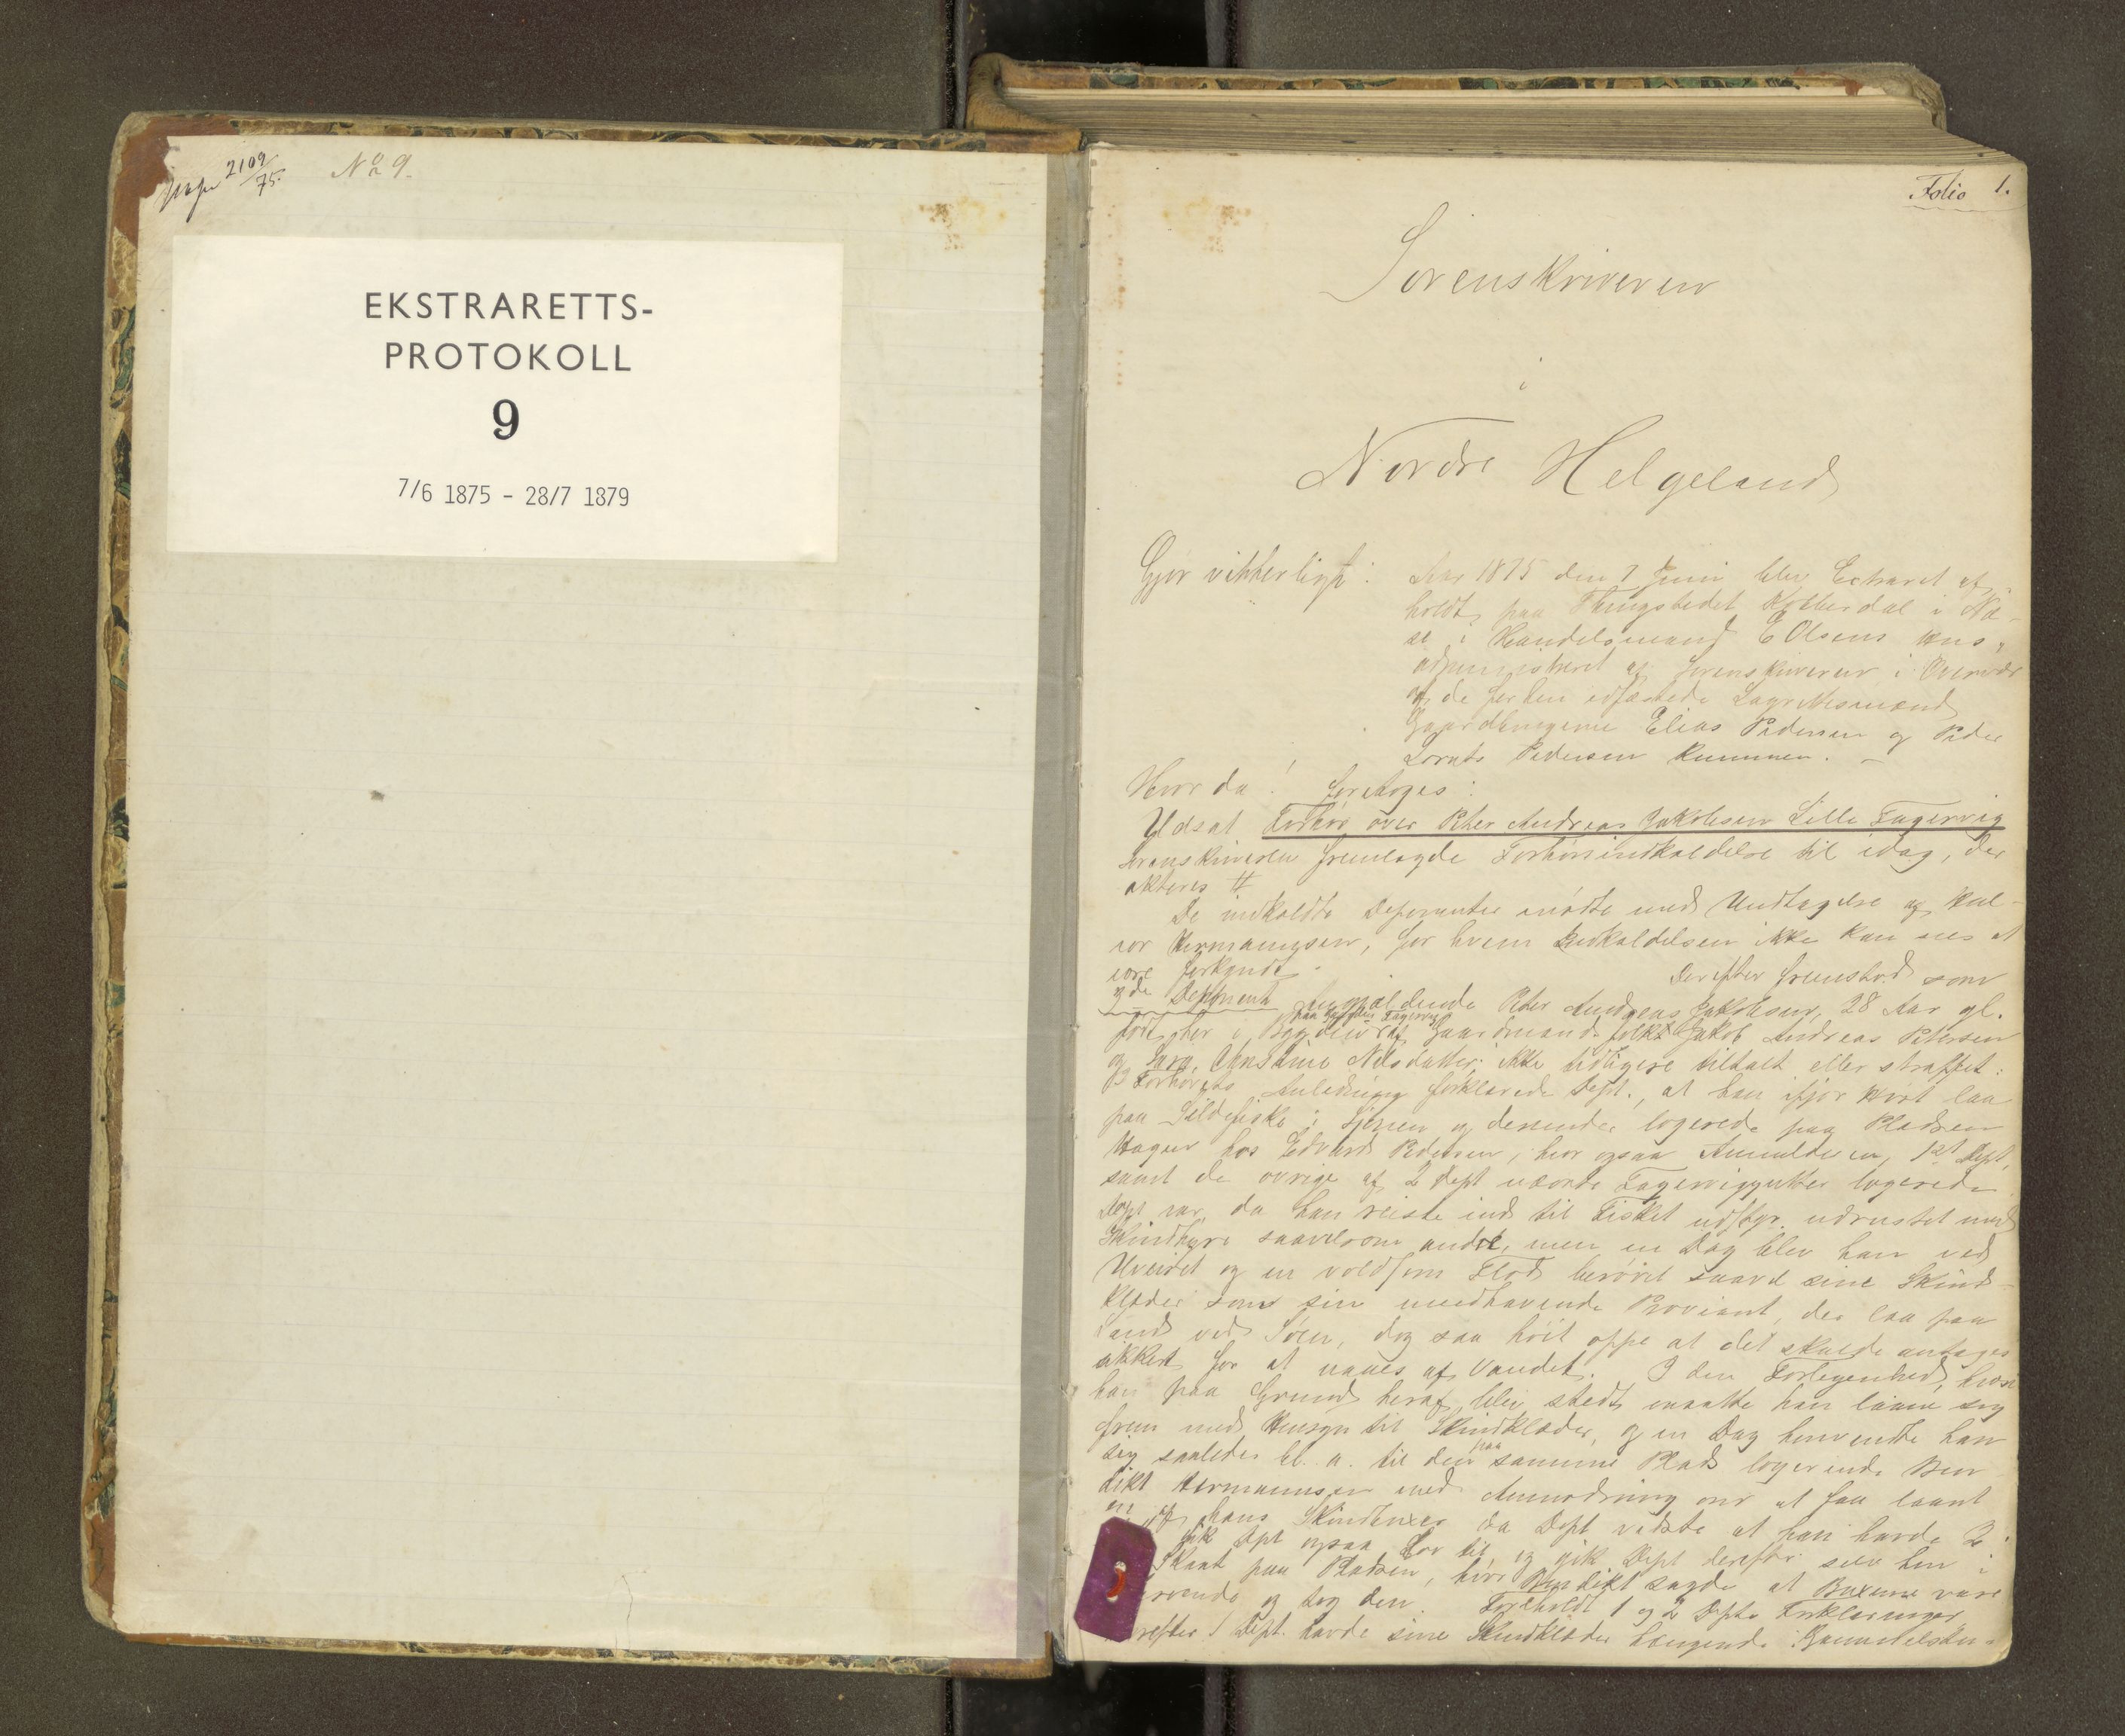 2109/75.
No 9.
EKSTRARETTS-
PROTOKOLL
9
7/6 1875 - 28/7 1879
Folio 1.
Sorenskriveren
i
Nordre Helgeland
Gjør vitterligt: Aar 1875 den 7 Juni blev Extraret af-
holdt paa Thingstedet i Næ-
i Handelsmand E Olsens Hus,
administreret af Sorenskriveren i Overvær
af de forhen edfæstede Lagrettesmænd
Gaardbrugerne Elias Pedersen og Peder
Lornts Pedersen
Hvor da! foretoges:
Udsat Forhør over Peter Andreas Jakobsen Lille Fagervig
Sorenskriveren fremlagde Forhørsindkaldelse til idag, der
akteres #
De indkaldte Deponenter mødte med Undtagelse af Hal-
vor Hermansen, for hvem Indkaldelsen ikke kan sees at
være forkyndt. Derefter fremstod som
Deponent Anmeldende Peter Andreas Jakobsen, 28 Aar gl.
født her i Bygden af Gaardmandsfolk Jakob Andreas Petersen
og Christine Nilsdatter; ikke tidligere tiltalt eller straffet:
I Forhørets Anledning forklarede Dept., at han ifjor Høst laa
paa Sildefiske i Sjonen og derunder logerede paa Pladsen
Hagen hos Edvard Pedersen, hvor ogsaa Anmelderen, 1st Dept,
samt de øvrige af 2 Dept nævnte Fagerviggutter logerede
Dept var, da han reiste ind til Fisket udrustet med
Skindhyre saavelsom andre, men en Dag blev han ved
Uveiret og en voldsom Flod berøvet saavel sine Skind-
klæder som sin medhavende Proviant, der laa paa
Land ved Søen, dog saa høit oppe at det skulde antages
sikkert for at naaes af Vandet. I den Forlegenhed, hvori
han paa Grund heraf blev stedt maatte han laane sig
frem med Hensyn til Skindklæder, og en Dag henvendte han
sig saaledes bl. a. til den paa samme Plads logerende Ben-
dikt Hermansen med Anmodning om at faa laant
en af hans Skindbuxer da Dept vidste at han havde 2.
fik Dpt ogsaa Lov til og gik Dept derefter selv hen i
paa Pladsen, hvor Bendikt sagde at Buxerne vare
og tog den. Foreholdt 1 og 2 Depts Forklaringer
hvorefter 1 Dept. havde sine Skindklæder hængende i